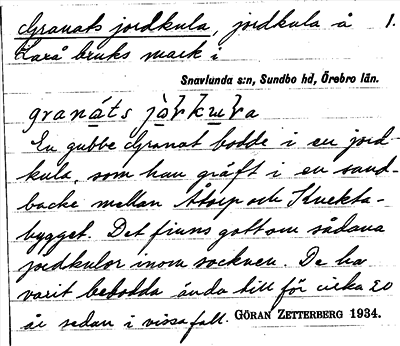 Granats jordkula, jordkula å 1.
Laxå bruks mark i
Snavlunda s:n, Sundbo hd, Örebro län.
granáts
En gubbe Granat bodde i en jord-
kula, som han gräft i en sand-
backe mellan Åtorp och Knekta-
bygget. Det finns gott om sådana
jordkulor inom socknen. De ha
varit bebodda ända till för cirka 20
år sedan i vissa fall. GÖRAN ZETTERBERG 1934.